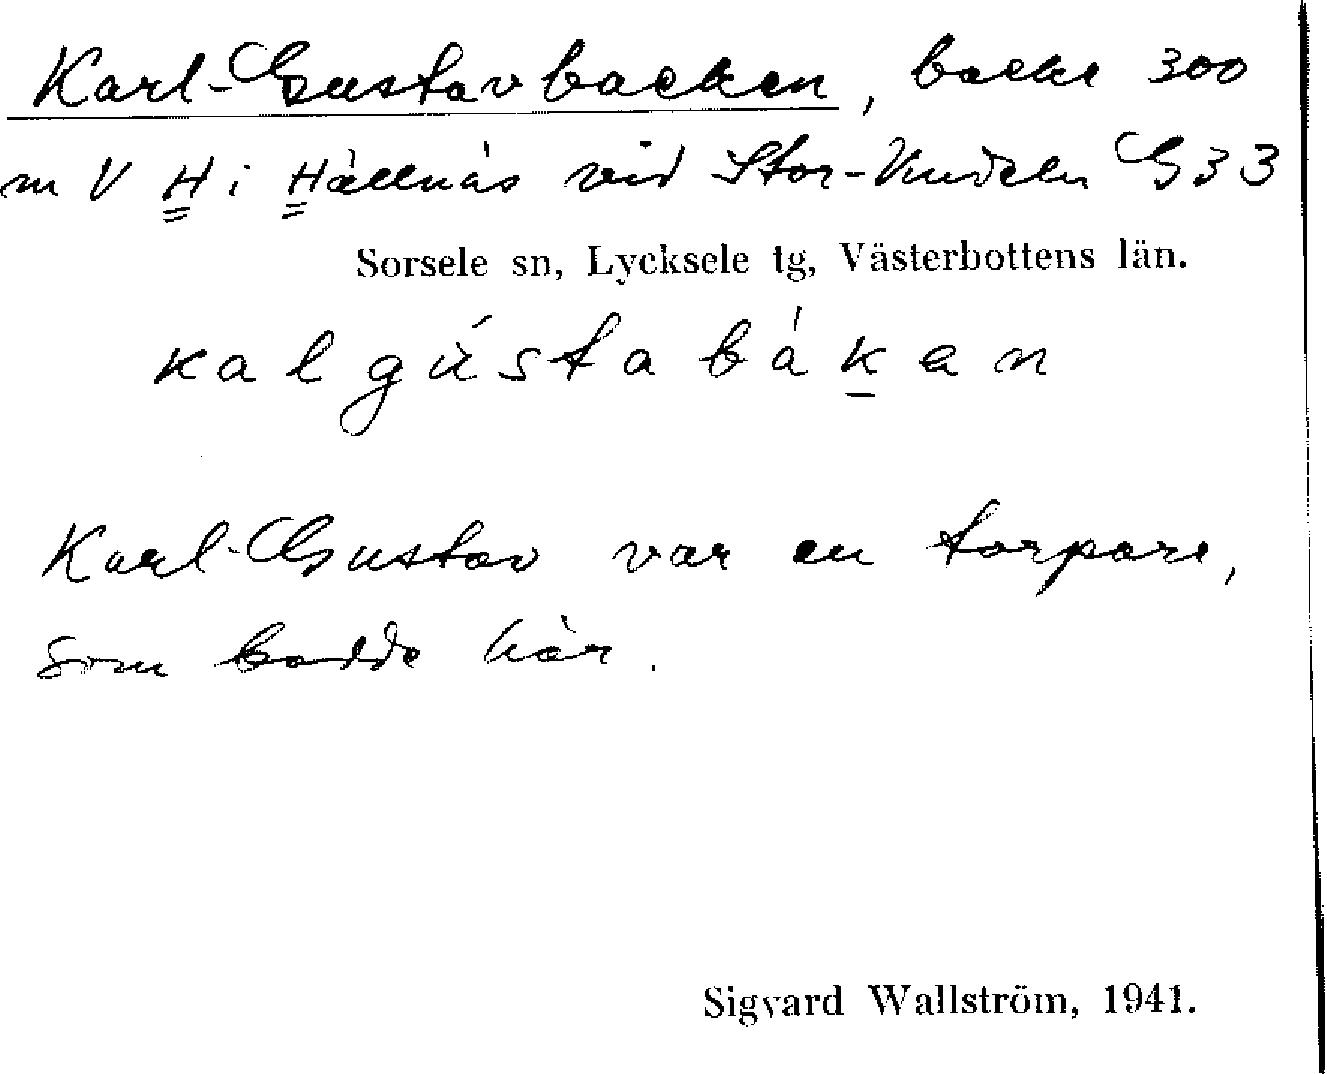 Karl-Gustavbacken, backe 300
m V H i Hällnäs vid Stor-Vindeln G33
Sorsele sn, Lycksele tg, Västerbottens län.
kalgústabáken
Karl-Gustav var en torpare,
som bodde här.
Sigvard Wallström, 1941.